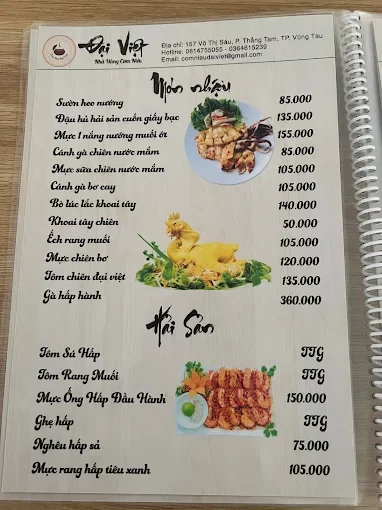 Đại Việt
Nhà Hàng Cơm Niêu
Địa chỉ: 157 Võ Thị Sáu, P. Thắng Tam, TP. Vũng Tàu
Hotline: 0814755055 - 0364615239
Email: comnieudaiviet@gmail.com
Món nhậu
Sườn heo nướng 85.000
Đậu hủ hải sản cuốn giấy bạc 135.000
Mực 1 nắng nướng muối ớt 155.000
Cánh gà chiên nước mắm 85.000
Mực sữa chiên nước mắm 105.000
Cánh gà bơ cay 105.000
Bò lúc lắc khoai tây 140.000
Khoai tây chiên 50.000
Ếch rang muối 105.000
Mực chiên bơ 120.000
Tôm chiên đại việt 135.000
Gà hấp hành 360.000
Hải Sản
Tôm Sú Hấp TTG
Tôm Rang Muối TTG
Mực Ống Hấp Đầu Hành 150.000
Ghẹ hấp TTG
Nghêu hấp sả 75.000
Mực rang hấp tiêu xanh 105.000